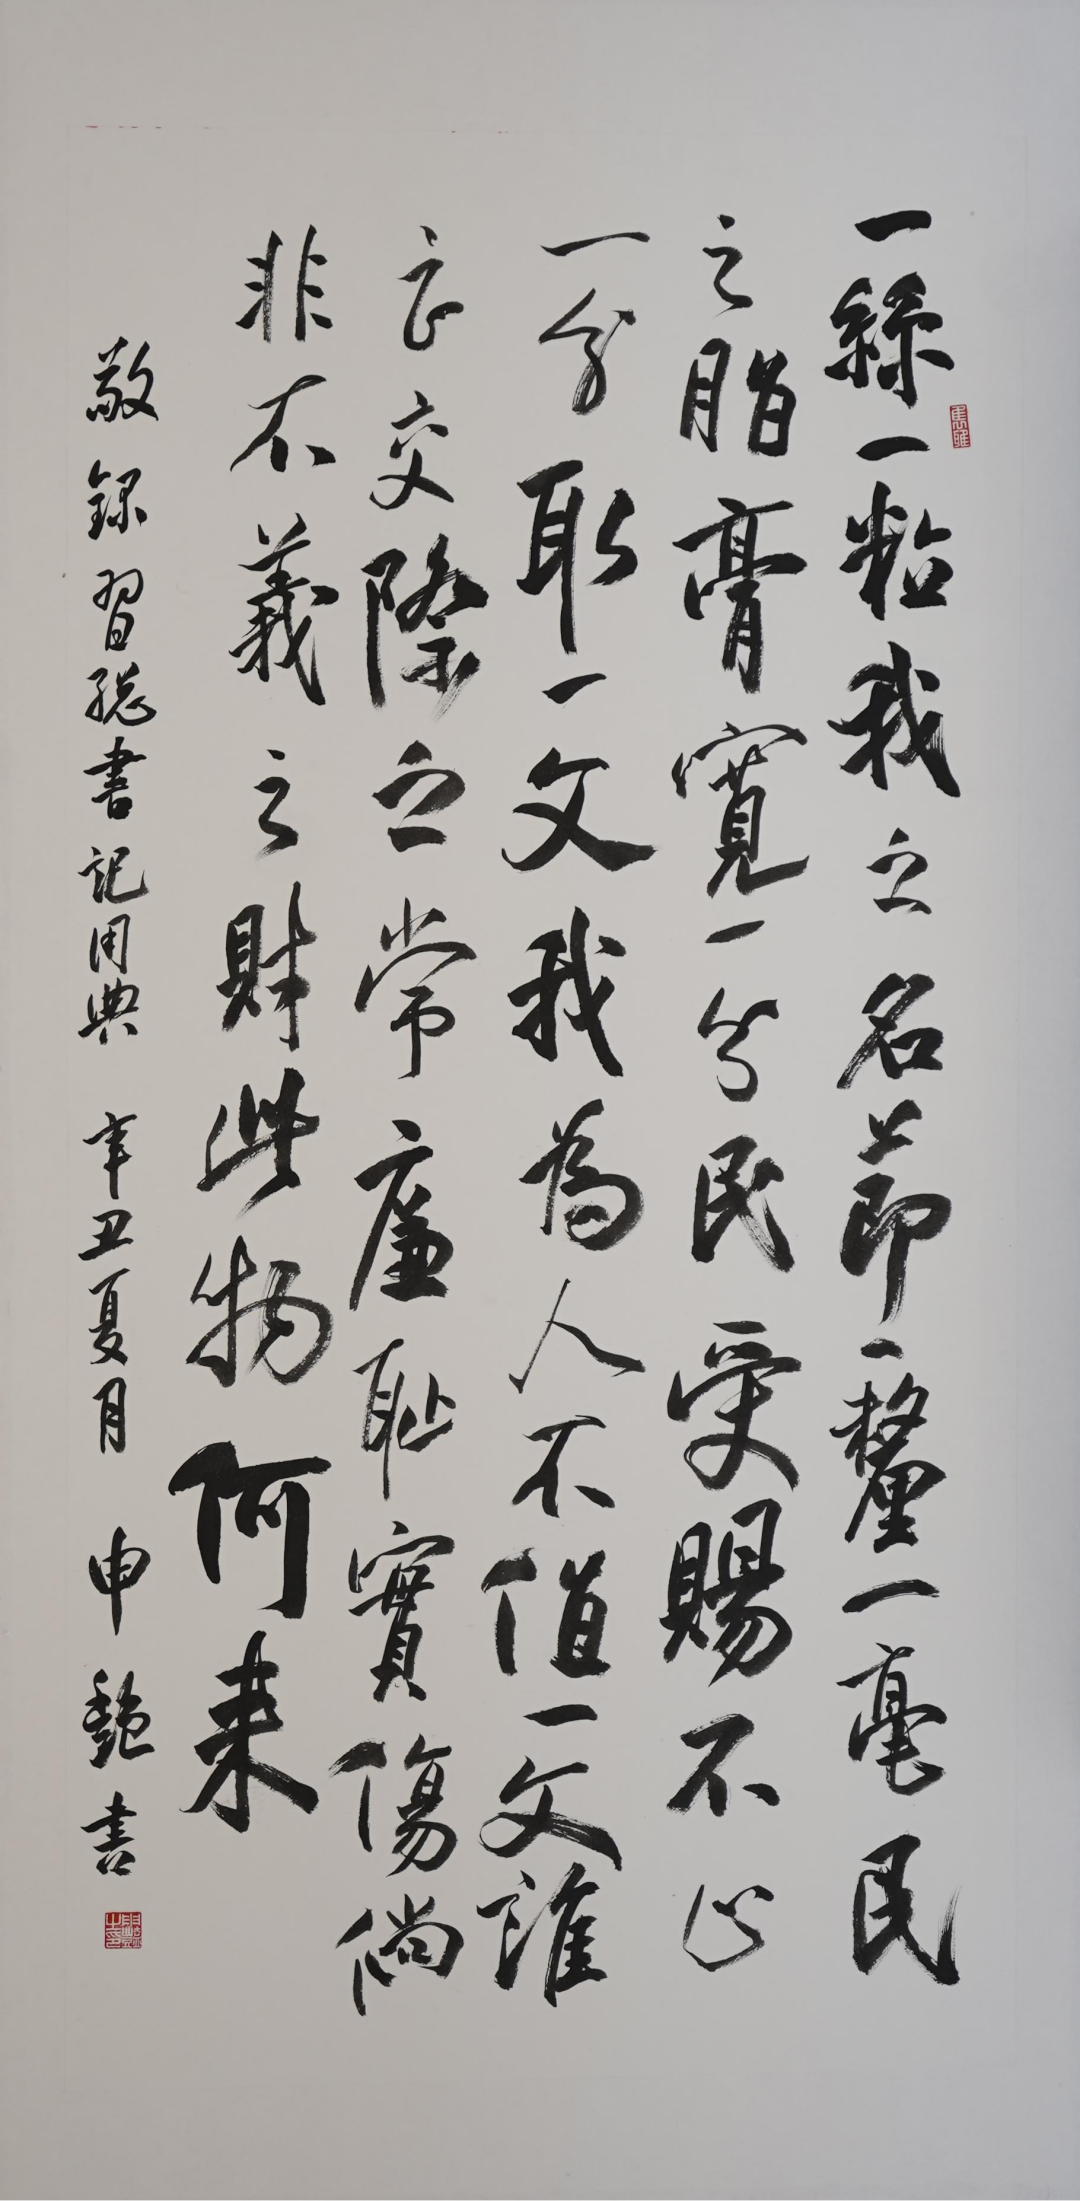 一絲一粒我之名節一釐一毫民
之脂膏寬一分民受賜不止
一分取一文我為人不值一文誰
言交際之常廉恥實傷倘
非不義之財此物何来
敬録習總書記用典 辛丑夏月 申艷書